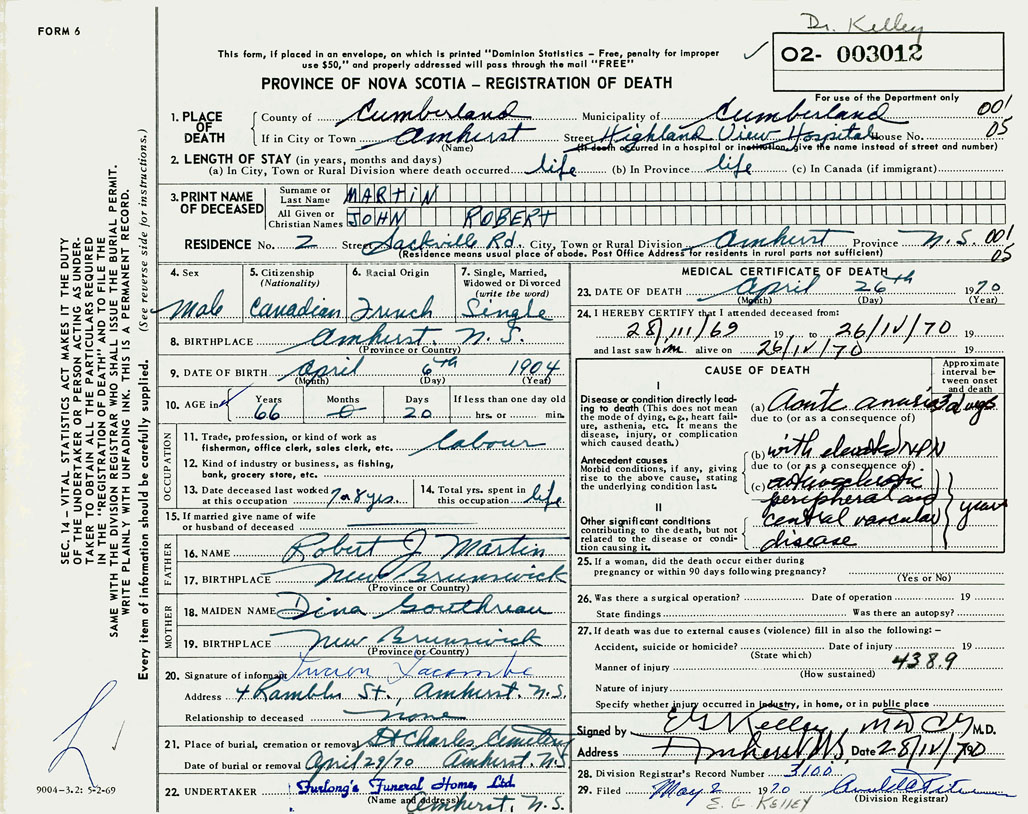 FORM 6
Dr. Kelley
This form, if placed in an envelope, on which is printed "Dominion Statistics – Free, penalty for improper
use $50," and properly addressed will pass through the mail "FREE"
O2- 003012
PROVINCE OF NOVA SCOTIA – REGISTRATION OF DEATH
For use of the Department only
1. PLACE OF DEATH County of Cumberland Municipality of Cumberland 001
If in City or Town Amherst Street Highland View Hospital House No. 05
(Name) (If death occurred in a hospital or institution, give the name instead of street and number)
2. LENGTH OF STAY (in years, months and days)
(a) In City, Town or Rural Division where death occurred life (b) In Province life (c) In Canada (if immigrant)
3. PRINT NAME OF DECEASED Surname or Last Name MARTIN
All Given or Christian Names JOHN ROBERT
RESIDENCE No. 2 Street Sackville Rd. City, Town or Rural Division Amherst Province N.S. 001
(Residence means usual place of abode. Post Office Address for residents in rural parts not sufficient) 05
4. Sex Male
5. Citizenship (Nationality) Canadian
6. Racial Origin French
7. Single, Married, Widowed or Divorced (write the word) Single
8. BIRTHPLACE Amherst N.S.
(Province or Country)
9. DATE OF BIRTH April 6th 1904
(Month) (Day) (Year)
10. AGE in Years Months Days If less than one day old
66 0 20 hrs. or min.
OCCUPATION
11. Trade, profession, or kind of work as fisherman, office clerk, sales clerk, etc. labour
12. Kind of industry or business, as fishing, bank, grocery store, etc.
13. Date deceased last worked at this occupation 7 or 8 yrs.
14. Total yrs. spent in this occupation life
15. If married give name of wife or husband of deceased
FATHER
16. NAME Robert J Martin
17. BIRTHPLACE New Brunswick
(Province or Country)
MOTHER
18. MAIDEN NAME Dina Gouthreau
19. BIRTHPLACE New Brunswick
(Province or Country)
20. Signature of informant Lacombe
Address 4 Rambler St., Amherst N.S.
Relationship to deceased none
21. Place of burial, cremation or removal St Charles Cemetery
Date of burial or removal April 29/70 Amherst. N.S
22. UNDERTAKER Furlong's Funeral Home, Ltd.
(Name and address) Amherst, N.S.
MEDICAL CERTIFICATE OF DEATH
23. DATE OF DEATH April 26th 1970
(Month) (Day) (Year)
24. I HEREBY CERTIFY that I attended deceased from:
28/111/69 19 to 26/IV/70 19
and last saw him alive on 26/IV/70 19
CAUSE OF DEATH
Approximate interval between onset and death
I
Disease or condition directly leading to death (This does not mean the mode of dying, e.g., heart failure, asthenia, etc. It means the disease, injury, or complication which caused death.)
(a) Acute anuria 3 days
due to (or as a consequence of)
Antecedent causes
Morbid conditions, if any, giving rise to the above cause, stating the underlying condition last.
(b) with elevated NPN
due to (or as a consequence of)
(c) arteriosclerotic
peripheral and
II
Other significant conditions contributing to the death, but not related to the disease or condition causing it.
central vascular years
disease
25. If a woman, did the death occur either during pregnancy or within 90 days following pregnancy?
(Yes or No)
26. Was there a surgical operation? Date of operation 19
State findings Was there an autopsy?
27. If death was due to external causes (violence) fill in also the following: –
Accident, suicide or homicide? Date of injury 19
(State which)
Manner of injury 438.9
(How sustained)
Nature of injury
Specify whether injury occurred in industry, in home, or in public place
Signed by EG Kelley MD CM M.D.
Address Amherst N.S. Date 28/IV/1970
28. Division Registrar's Record Number 3100
29. Filed May 2 1970
(Division Registrar)
E. G KELLEY
SEC. 14 – VITAL STATISTICS ACT MAKES IT THE DUTY
OF THE UNDERTAKER OR PERSON ACTING AS UNDER-
TAKER TO OBTAIN ALL THE PARTICULARS REQUIRED
IN THE "REGISTRATION OF DEATH" AND TO FILE THE
SAME WITH THE DIVISION REGISTRAR WHO SHALL ISSUE THE BURIAL PERMIT.
WRITE PLAINLY WITH UNFADING INK. THIS IS A PERMANENT RECORD.
Every item of information should be carefully supplied. (See reverse side for instructions.)
9004-3.2: 5-2-69